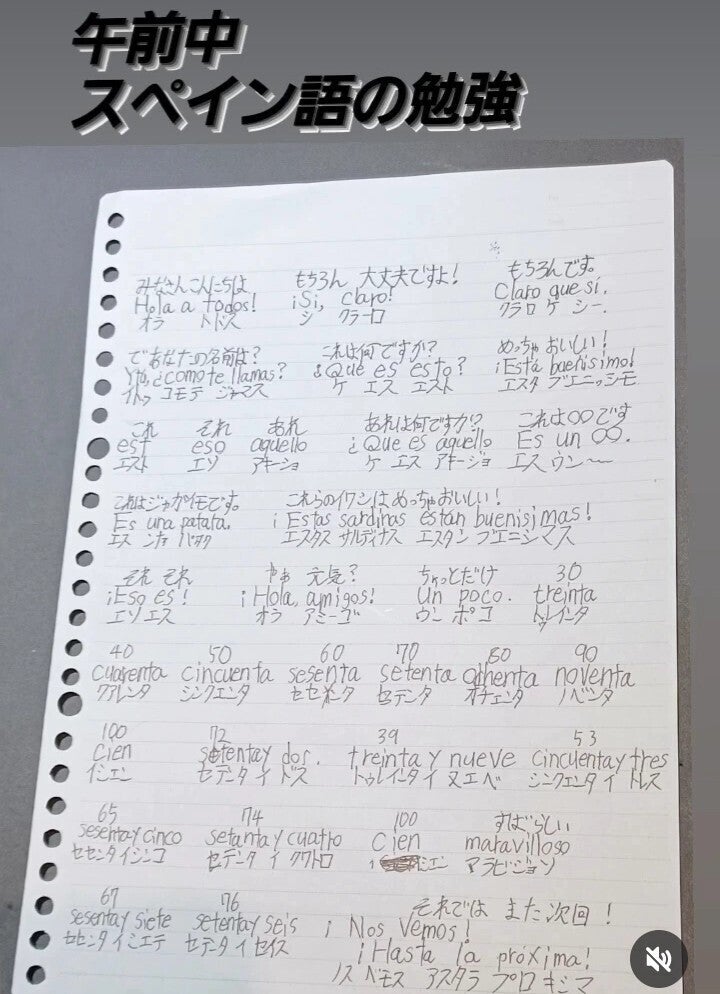 午前中
スペイン語の勉強
みなさんこんにちは もちろん 大丈夫ですよ! もちろんです。
Hola a todos! ¡Si, claro! Claro que sí.
オラ トドス シ クラーロ クラロ ケ シー.
であなたの名前は? これは何ですか? めっちゃ おいしい!
Y tú, ¿cómo te llamas? ¿Qué es esto? ¡Está buenísimo!
コモ テ ジャマス ケ エス エスト エスタ ブエニッシモ
これ それ あれ あれは何ですか? これは○○です
est eso aquello ¿Que es aquello Es un ○○.
エスト エソ アキージョ ケ エス アキージョ エス ウン〜
これはジャガイモです。 これらのイワシはめっちゃおいしい!
Es una patata. ¡Estas sardinas están buenisimas!
エス エスタス サルディナス エスタン ブエニシマス
それ それ やぁ 元気? ちょっとだけ 30
¡Eso es! ¡Hola, amigos! Un poco. treinta
エソ エス オラ アミーゴ ウン ポコ トゥレインタ
40 50 60 70 80 90
cuarenta cincuenta sesenta setenta noventa
クアレンタ シンクエンタ セセンタ セテンタ オチェンタ ノベンタ
100 72 39 53
Cien setenta y dos. treinta y nueve cincuenta y tres
セテンタ イ ドス トゥレインタ イ ヌエベ シンクエンタ イ トレス
65 74 100 すばらしい
sesenta y cinco setanta y cuatro Cien maravilloso
セセンタ イ シンコ セテンタ イ クワトロ マラビジョソ
67 76 それでは また次回!
sesenta y siete setenta y seis ¡Nos vemos!
セセンタ イ シエテ セテンタ イ セイス ¡Hasta la próxima!
ノス ベモス アスタ ラ プロキシマ